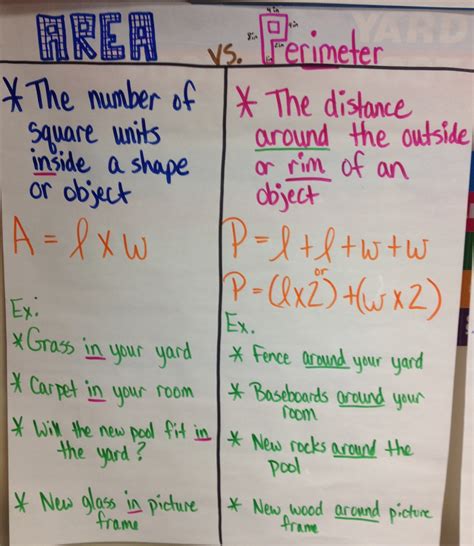 AREA vs. Perimeter
4in
8in
2in
YARD
* The number of
square units
inside a shape
or object
A = l x w
Ex:
* Grass in your yard
* Carpet in your room
* Will the new pool fit in
the yard?
* New glass in picture
frame
* The distance
around the outside
or rim of an
object
P = l + l + w + w
or
P = (l x 2) + (w x 2)
Ex.
* Fence around your yard
* Baseboards around your
room
* New rocks around the
pool
* New wood around picture
frame